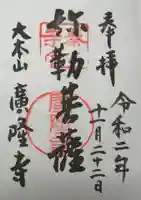 奉拝
令和二年
十一月二十二日
弥勒菩薩
大本山
廣隆寺